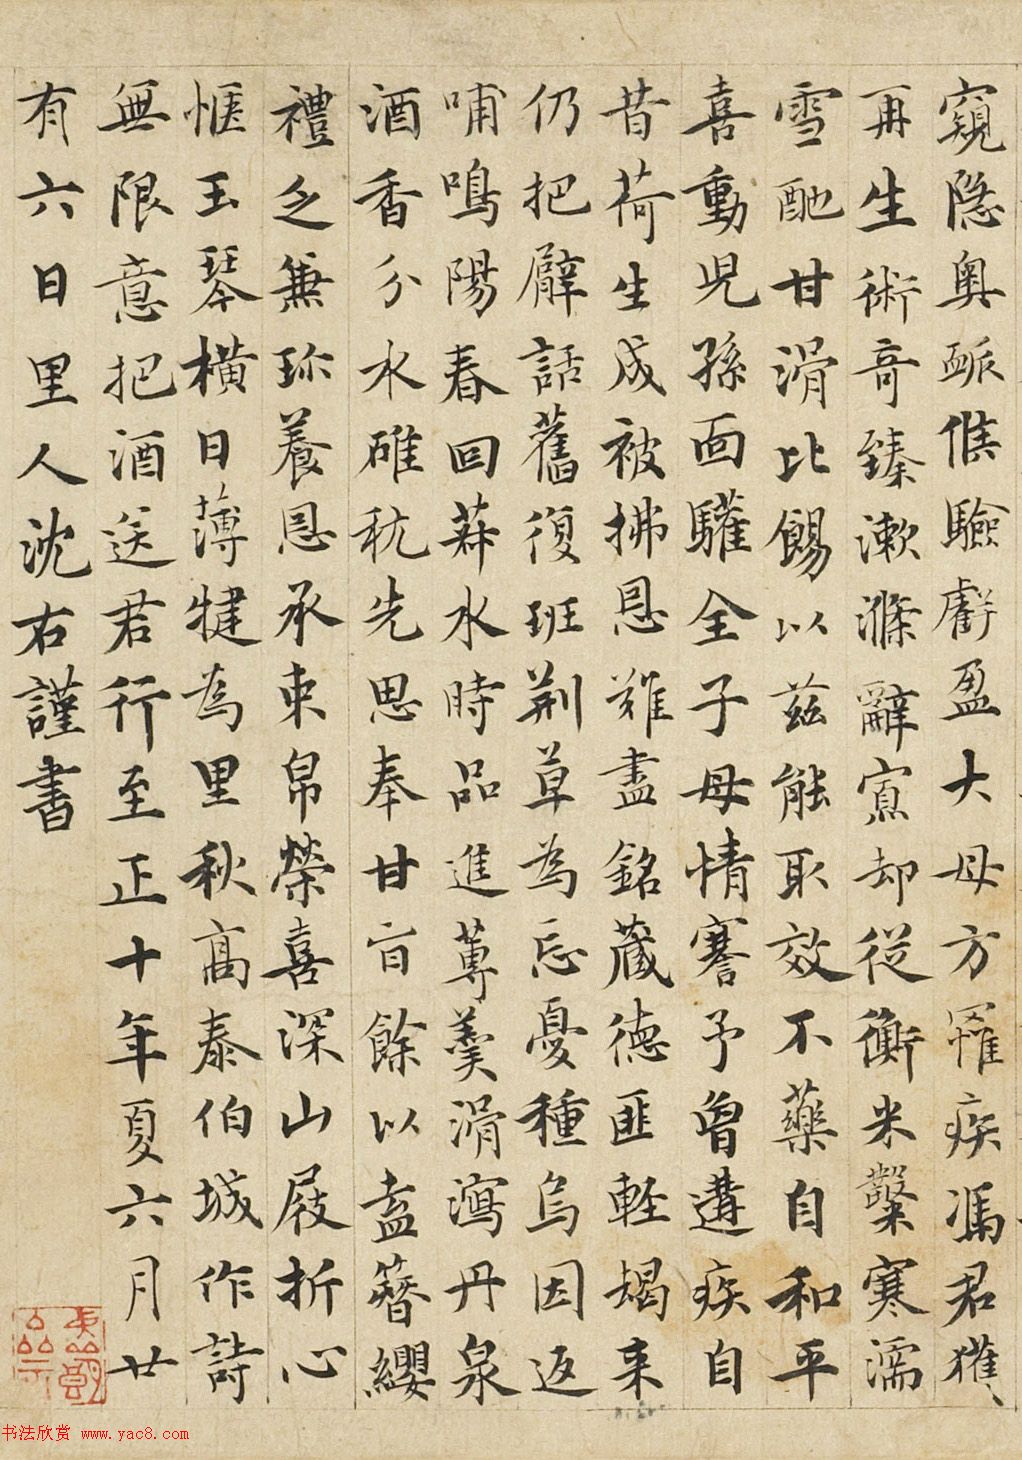 窺隱奧䘑候驗虧盈大母方罹疾馮君獲
再生術奇臻漱滌辭實却從衡米鑿寒濡
雪酏甘滑比餳以茲能取效不藥自和平
喜動児孫面驩全子母情謇予曾遘疾自
昔荷生成被拂恩難盡銘藏德匪輕朅来
仍把臂話舊復班荊草為忘憂種烏因返
哺鳴陽春回莽水時品進蓴羹滑瀉丹泉
酒香分水碓秔先思奉甘旨餘以盍簪纓
禮之兼珎養恩承束帛榮喜深山屐折心
愜玉琴橫日薄犍為里秋高泰伯城作詩
無限意把酒送君行至正十年夏六月廿
有六日里人沈右謹書
书法欣赏 www.yac8.com